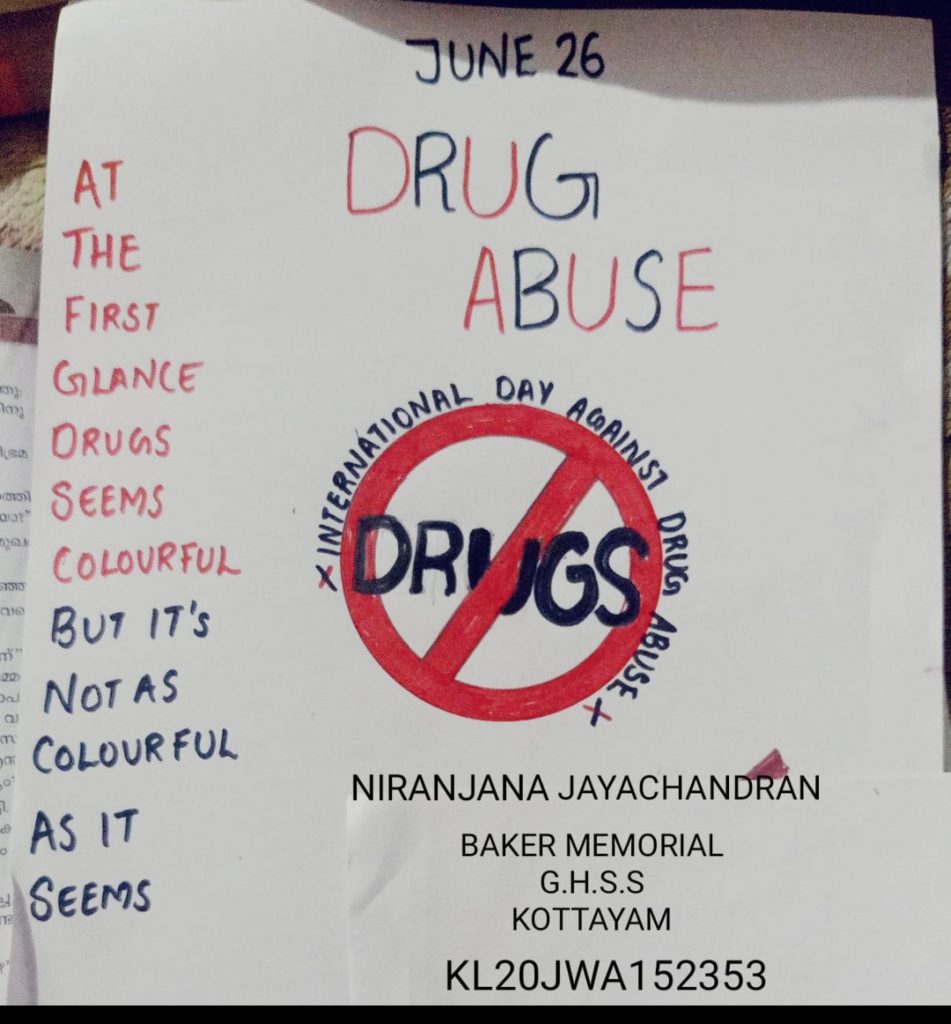 JUNE 26
DRUG
ABUSE
AT
THE
FIRST
GLANCE
DRUGS
SEEMS
COLOURFUL
BUT IT'S
NOT AS
COLOURFUL
AS IT
SEEMS
x INTERNATIONAL DAY AGAINST DRUG ABUSE x
DRUGS
NIRANJANA JAYACHANDRAN
BAKER MEMORIAL
G.H.S.S
KOTTAYAM
KL20JWA152353